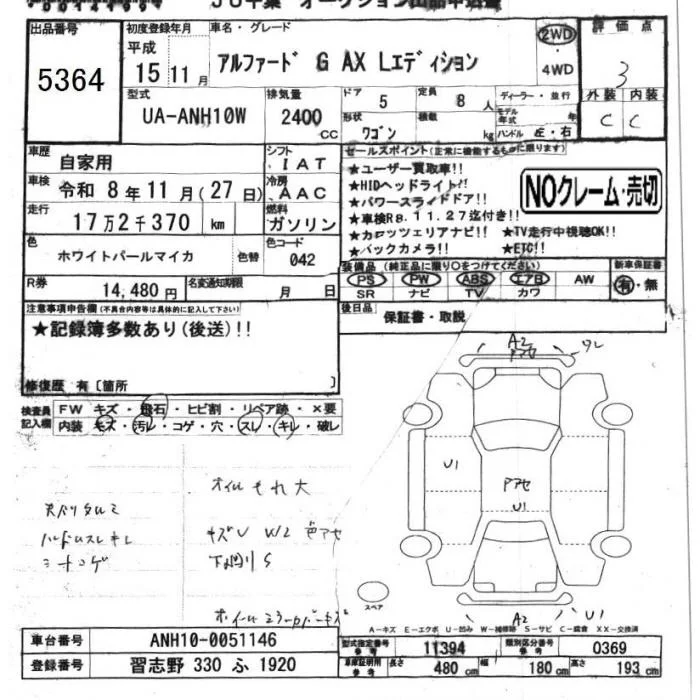 JU千葉 オークション出品申込書
出品番号 初度登録年月 車名・グレード 評価点
5364 平成 15 11月 アルファード G AX Lエディション 2WD 4WD 3
外装 内装
C C
型式 UA-ANH10W 排気量 2400 CC ドア 5 定員 8 人 ディーラー・並行
モデル年式 年
形状 ワゴン 積載 kg ハンドル 左・右
車歴 自家用 シフト IAT
車検 令和 8年 11月 (27日) 冷房 AAC
走行 17万2千370 km 燃料 ガソリン
色 ホワイトパールマイカ 色替 色コード 042
R券 14,480円 名変通知期限 月 日
セールスポイント(正常に機能するものに限ります)
★ユーザー買取車!!
★HIDヘッドライト!!
★パワースライドドア!!
★車検R8.11.27迄付き!!
★カロッツェリアナビ!! ★TV走行中視聴OK!!
★バックカメラ!! ★ETC!!
NOクレーム・売切
装備品 (純正品に限り○をつけてください) 新車保証書
PS PW ABS エアB AW 有・無
SR ナビ TV カワ
後日品 保証書・取説
注意事項申告欄(不具合内容等は具体的に記入して下さい)
★記録簿多数あり(後送)!!
修復歴 有〔箇所 〕
検査員記入欄 FW キズ・飛石・ヒビ割・リペア跡・×要
内装 キズ・汚レ・コゲ・穴・スレ・キレ・破レ
A2
アセ
ワレ
U1
アセ
U1
オイルもれ大
天バリタルミ
ハンドルスレキレ
シートコゲ
キズU W2 色アセ
下廻りS
スペア
A2 U1
A-キズ E-エクボ U-凹み W-補修跡 S-サビ C-腐食 XX-交換済
車台番号 ANH10-0051146
登録番号 習志野 330 ふ 1920
型式指定番号 参考 11394 類別区分番号 参考 0369
車庫証明用 参考 長さ 480 cm 幅 180 cm 高さ 193 cm